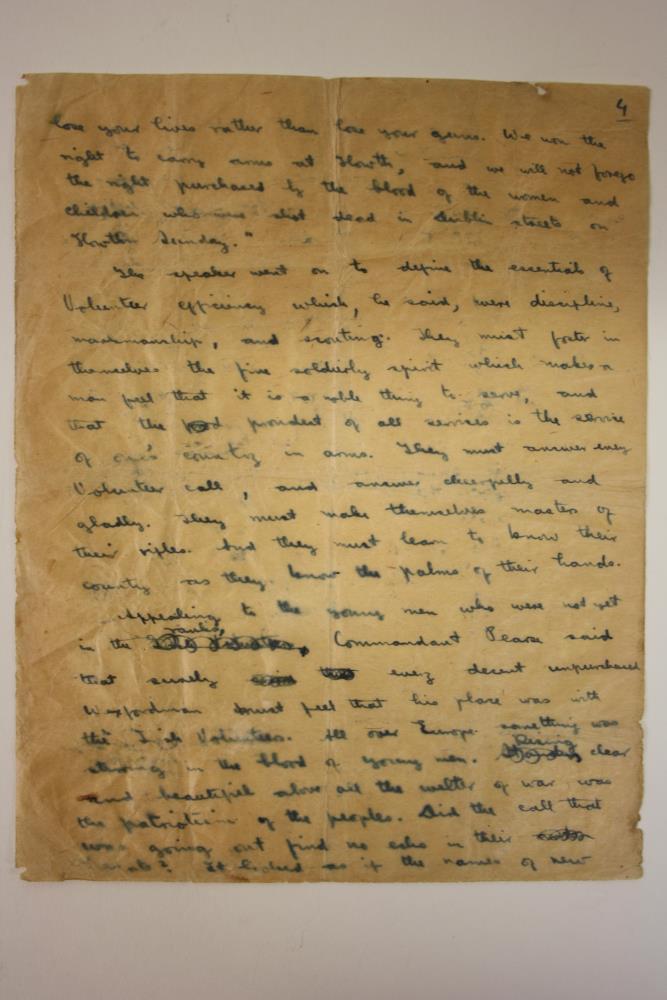 4
lose your lives rather than lose your guns. We won the
right to carry arms at Howth, and we will not forego
the right purchased by the blood of the women and
children who were shot dead in Dublin streets on
Howth Sunday."
The speaker went on to define the essentials of
Volunteer efficiency which, he said, were discipline,
marksmanship, and scouting. They must foster in
themselves the fine soldierly spirit which makes a
man feel that it is a noble thing to serve, and
that the proudest of all services is the service
of one's country in arms. They must answer every
Volunteer call, and answer cheerfully and
gladly. They must make themselves masters of
their rifles. And they must learn to know their
country as they know the palms of their hands.
Appealing to the young men who were not yet
in the ranks, Commandant Pearse said
that surely every decent unpurchased
Wexfordman must feel that his place was with
the Irish Volunteers. All over Europe something was
stirring in the blood of young men. Rising clear
and beautiful above all the welter of war was
the patriotism of the peoples. Did the call that
was going out find no echo in their
hearts? It looked as if the names of new